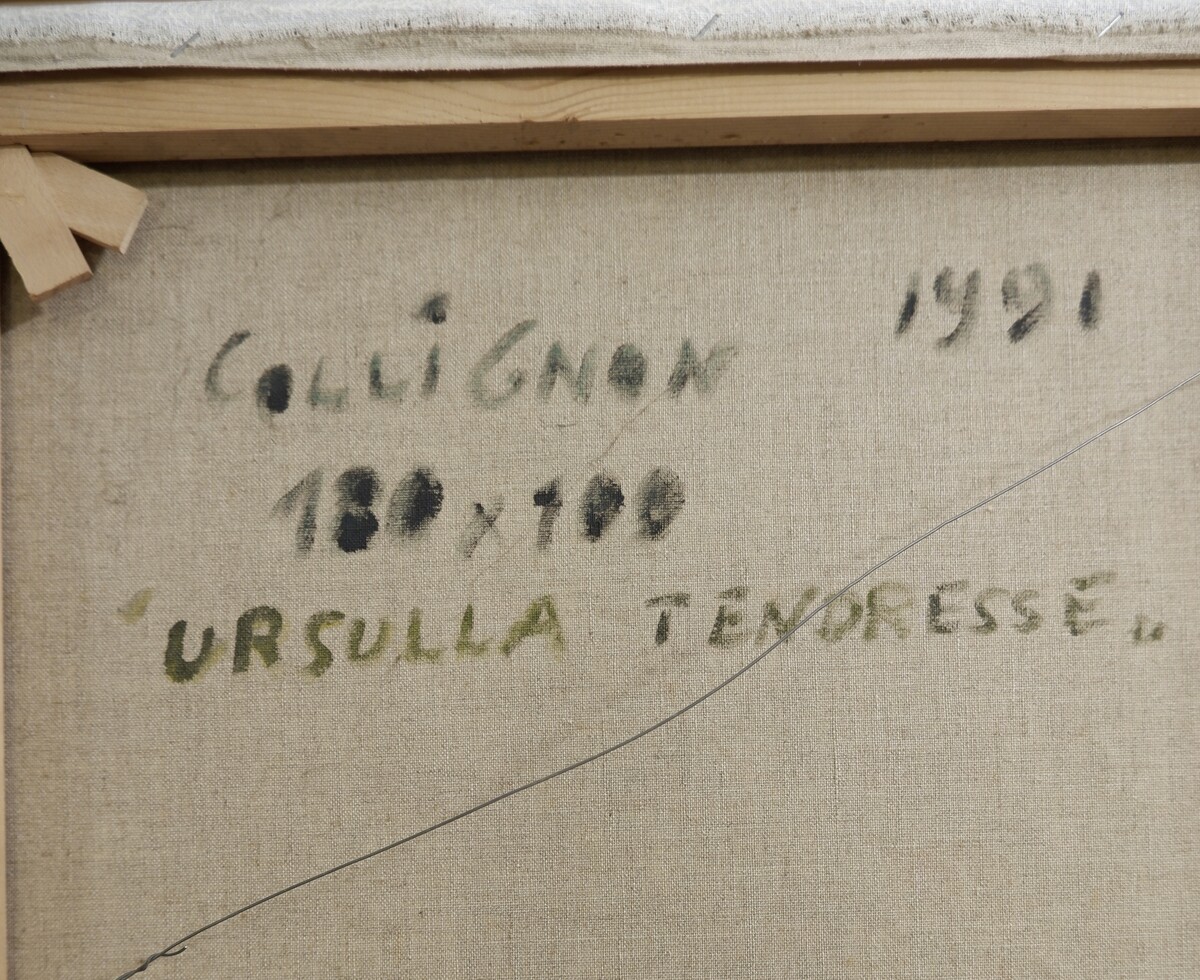 COLLiGNON 1991
180 x 100
"URSULLA TENDRESSE"